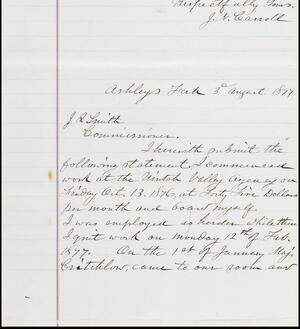 Respectfully Yours.
J. N. Carroll
Ashleys Fork 3d August 1877
J Q Smith
Commissioner.
I herewith submit the
following statement. I commenced
work at the Uintah Valley Agency on
Friday Oct. 13. 1876, at Forty Five Dollars
per month and board myself.
I was employed as herder while there
I quit work on Monday 12th of Feb.
1877. On the 1st of January Maj.
Critchlow, came to our room and